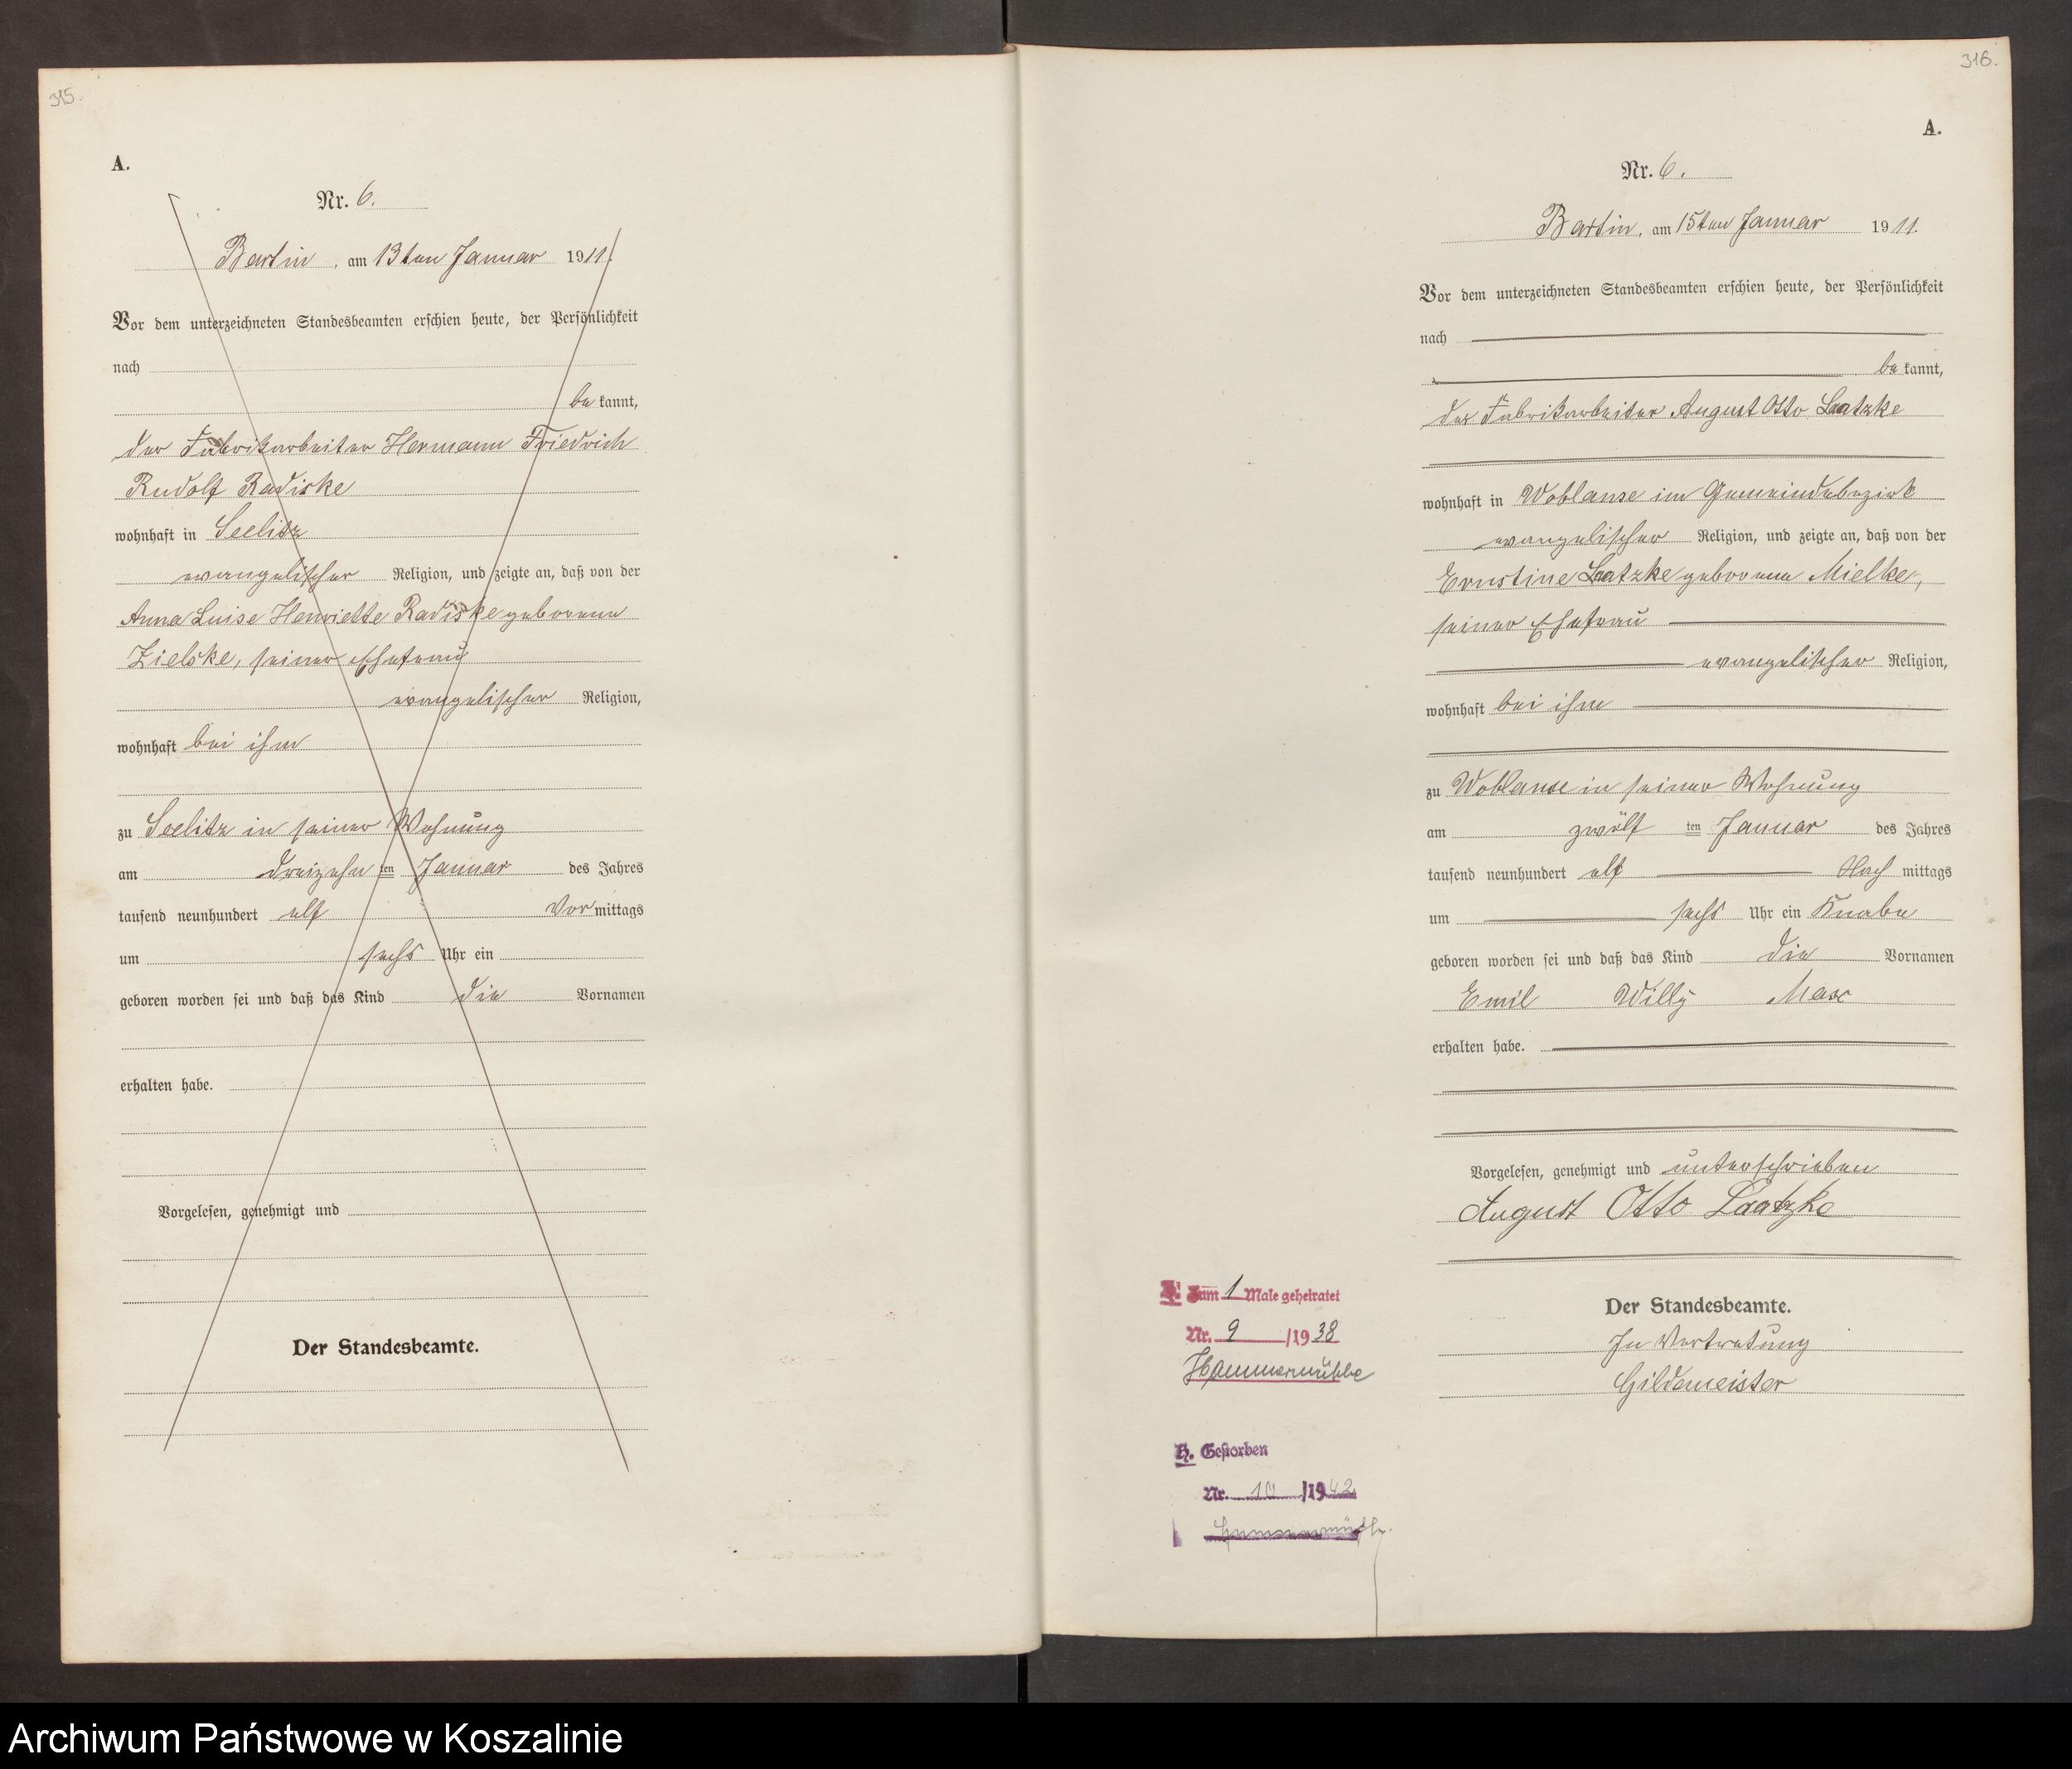 315.
A.
Nr. 6.
Bartin, am 13ten Januar 1911.
Vor dem unterzeichneten Standesbeamten erschien heute, der Persönlichkeit
nach
be kannt,
der Fabrikarbeiter Hermann Friedrich
Rudolf Radiske
wohnhaft in Seelitz
evangelischer Religion, und zeigte an, daß von der
Anna Luise Henriette Radiske geborene
Zielske, seiner Ehefrau
evangelischer Religion,
wohnhaft bei ihm
zu Seelitz in seiner Wohnung
am dreizehn ten Januar des Jahres
tausend neunhundert elf Vor mittags
um sechs Uhr ein
geboren worden sei und daß das Kind die Vornamen
erhalten habe.
Vorgelesen, genehmigt und
Der Standesbeamte.
316.
A.
Nr. 6.
Bartin, am 15ten Januar 1911.
Vor dem unterzeichneten Standesbeamten erschien heute, der Persönlichkeit
nach
be kannt,
der Fabrikarbeiter August Otto Laatzke
wohnhaft in Woblanse im Gemeindebezirk
evangelischer Religion, und zeigte an, daß von der
Ernstine Laatzke geborene Mielke,
seiner Ehefrau
evangelischer Religion,
wohnhaft bei ihm
zu Woblanse in seiner Wohnung
am zwölf ten Januar des Jahres
tausend neunhundert elf Nach mittags
um sechs Uhr ein Knabe
geboren worden sei und daß das Kind die Vornamen
Emil Willy Max
erhalten habe.
Vorgelesen, genehmigt und unterschrieben
August Otto Laatzke
Der Standesbeamte.
In Vertretung
Gildemeister
Zum 1 Male geheiratet
Nr. 9 /1938
Hammermühle
H. Gestorben
Nr. 10 /1942
Hammermühle
Archiwum Państwowe w Koszalinie